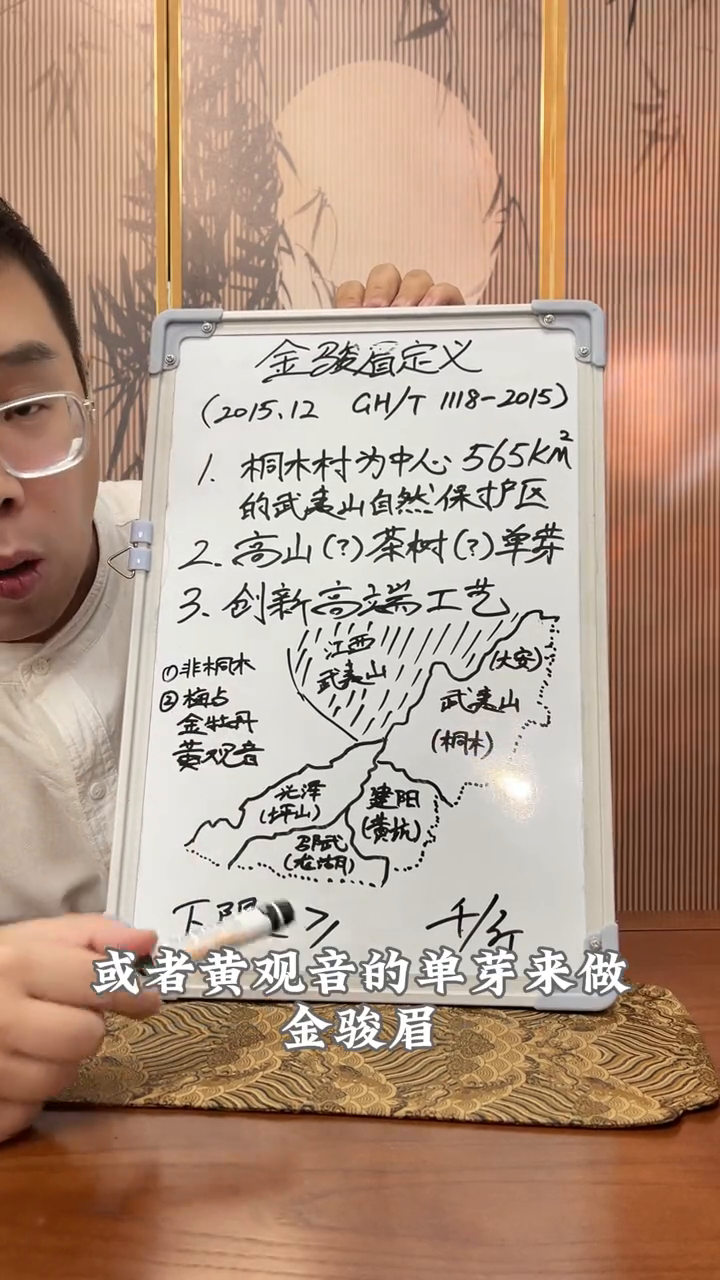 金骏眉定义
(2015.12 GH/T 1118-2015)
1. 桐木村为中心 565Km²
的武夷山自然保护区
2. 高山(?)茶树(?)单芽
3. 创新高端工艺
①非桐木
②梅占
金牡丹
黄观音
江西
武夷山
(大安)
武夷山
(桐木)
光泽
(坪山)
建阳
(黄坑)
邵武
(龙湖)
下限 ≥
千/斤
或者黄观音的单芽来做
金骏眉